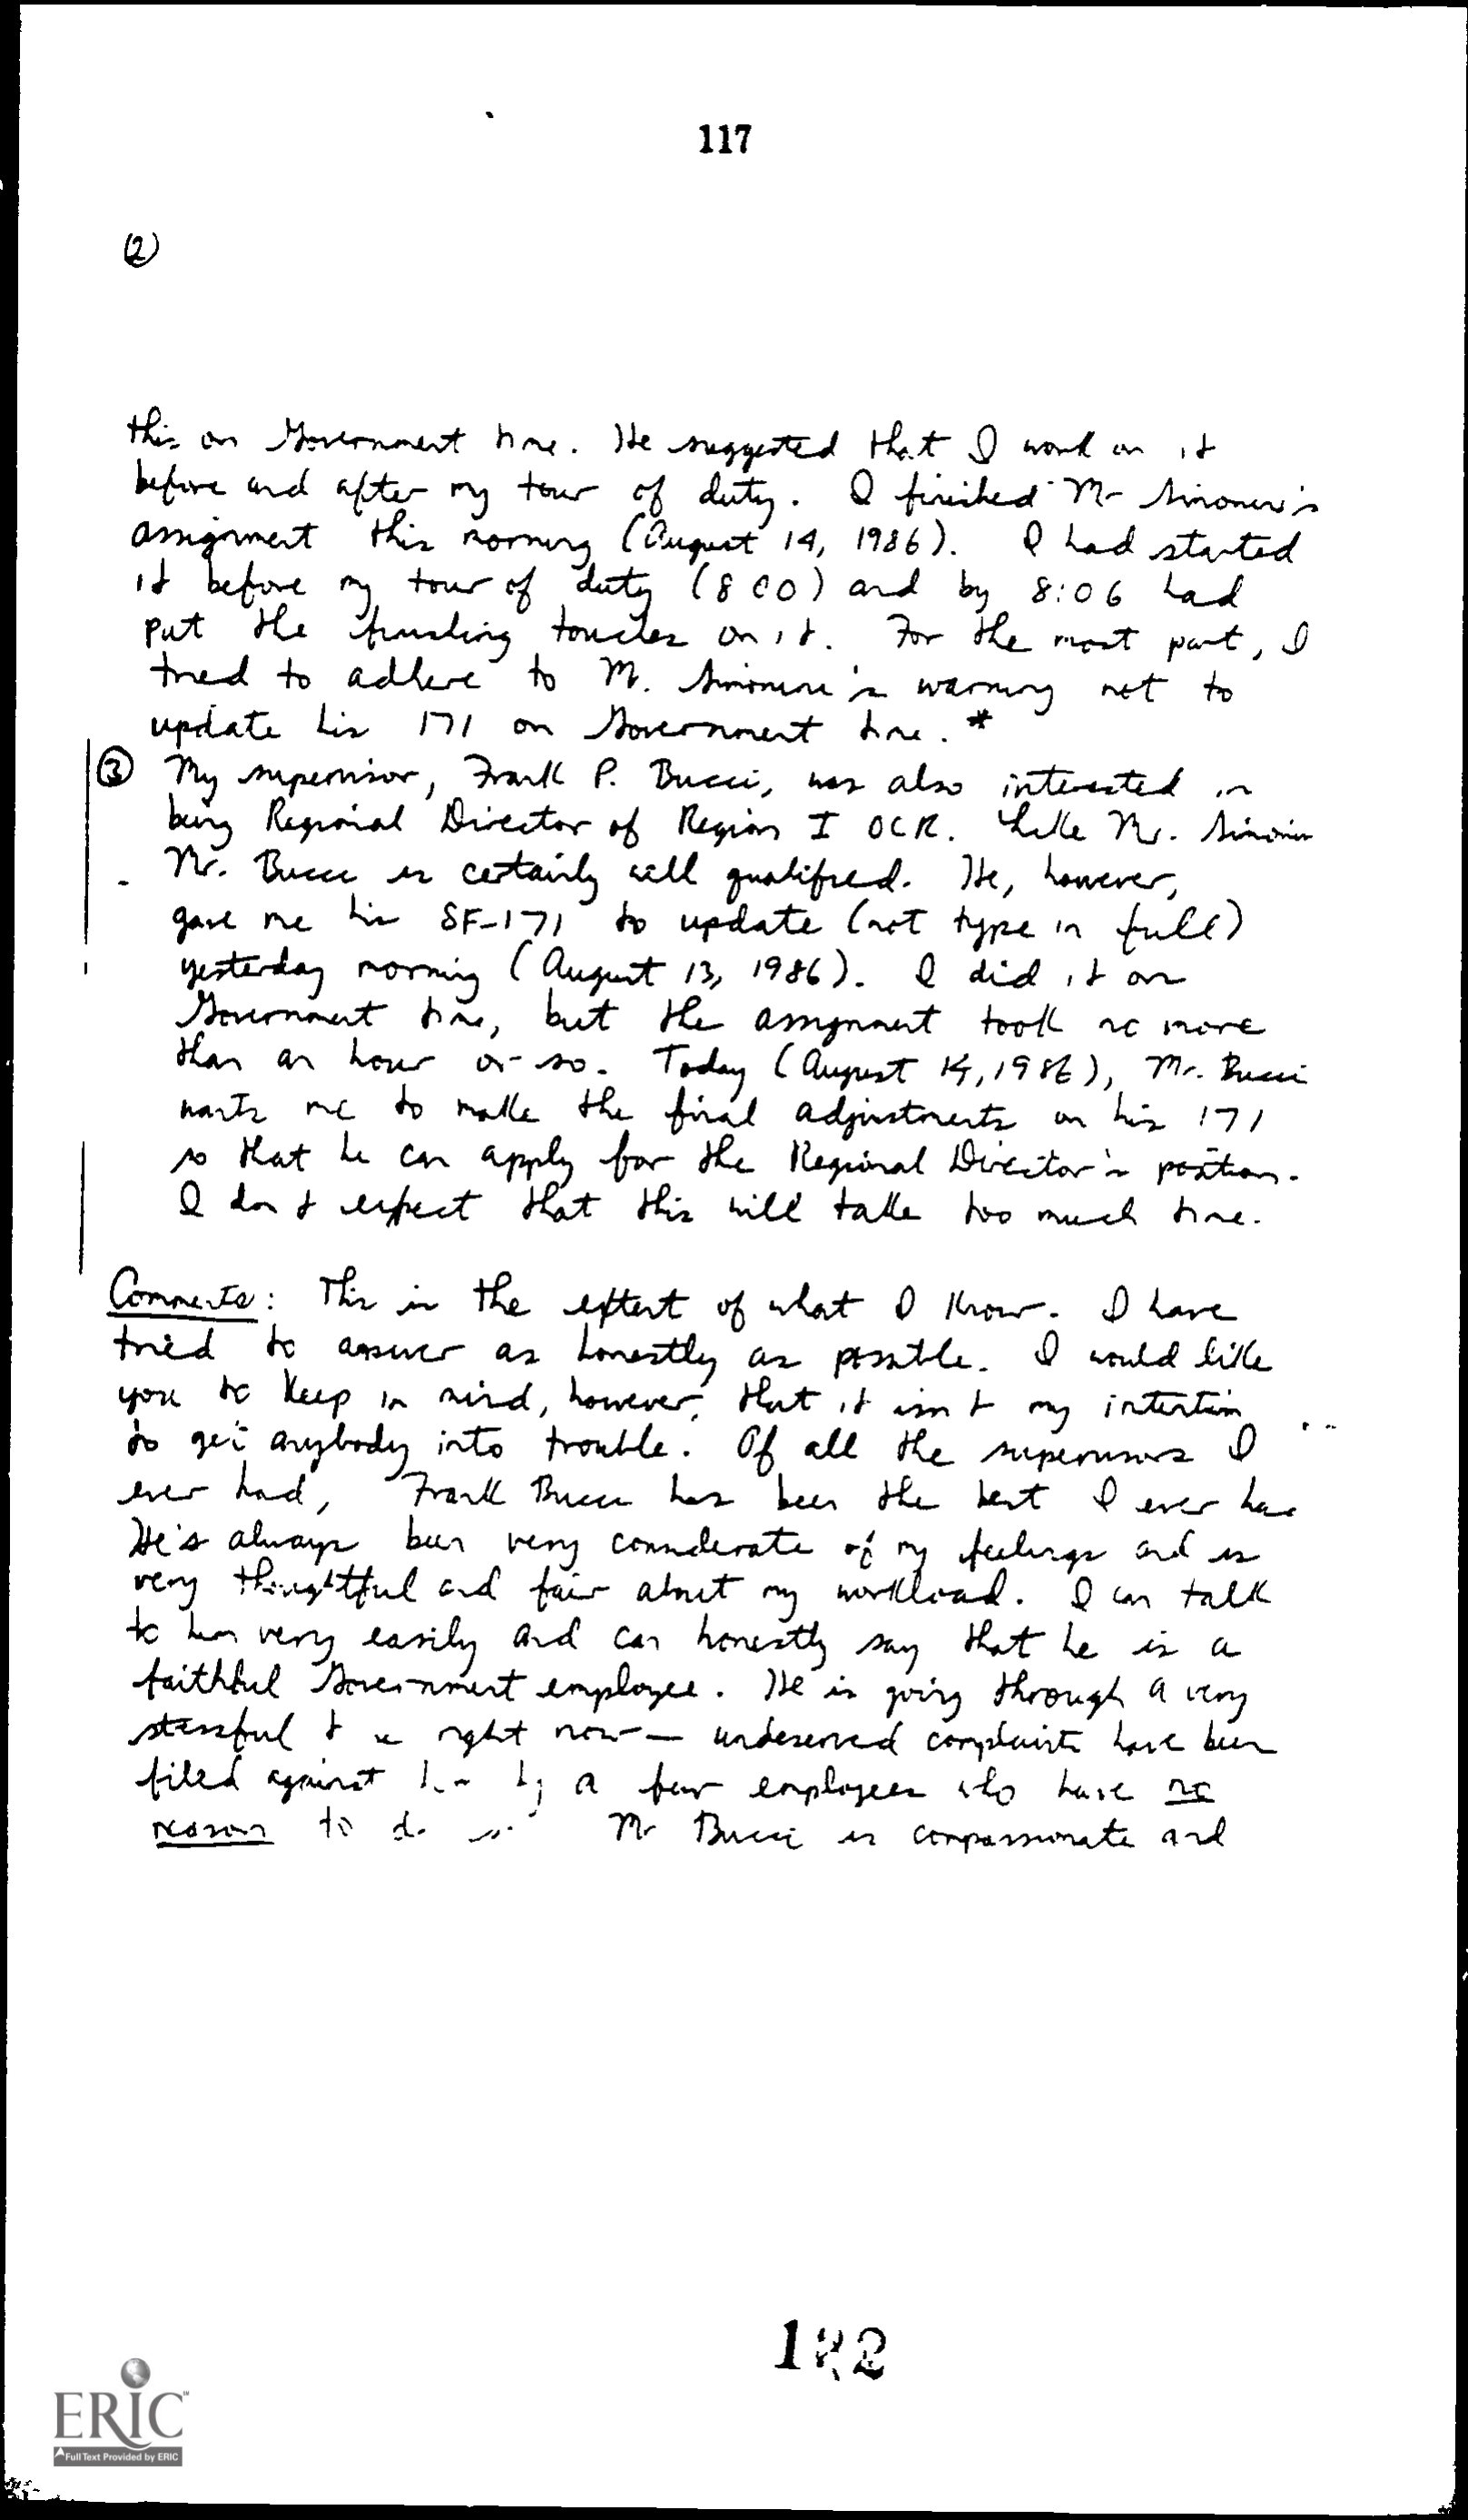 117
(2)
this on Government time. He suggested that I work on it
before and after my tour of duty. I finished Mr Simonini's
assignment this morning (August 14, 1986). I had started
it before my tour of duty (8:00) and by 8:06 had
put the finishing touches on it. For the most part, I
tried to adhere to Mr. Simonini's warning not to
update his 171 on Government time. *
(3) My supervisor, Frank P. Bucci, was also interested in
being Regional Director of Region I OCR. Like Mr. Simonini
Mr. Bucci is certainly well qualified. He, however,
gave me his SF-171 to update (not type in full)
yesterday morning (August 13, 1986). I did it on
Government time, but the assignment took no more
than an hour or so. Today (August 14, 1986), Mr. Bucci
wants me to make the final adjustments on his 171
so that he can apply for the Regional Director's position.
I don't expect that this will take too much time.
Comments: This is the extent of what I know. I have
tried to answer as honestly as possible. I would like
you to keep in mind, however, that it isn't my intention
to get anybody into trouble. Of all the supervisors I
ever had, Frank Bucci has been the best I ever had
He's always been very considerate of my feelings and is
very thoughtful and fair about my workload. I can talk
to him very easily and can honestly say that he is a
faithful Government employee. He is going through a very
stressful time right now — undeserved complaints have been
filed against him by a few employees who have no
reason to do so. Mr Bucci is compassionate and
122
ERIC
Full Text Provided by ERIC